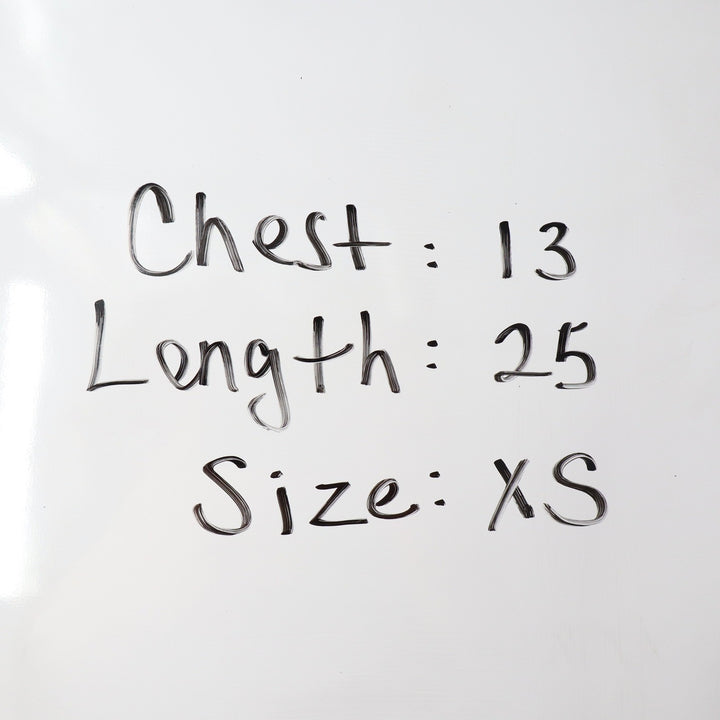 Chest: 13
Length: 25
Size: XS